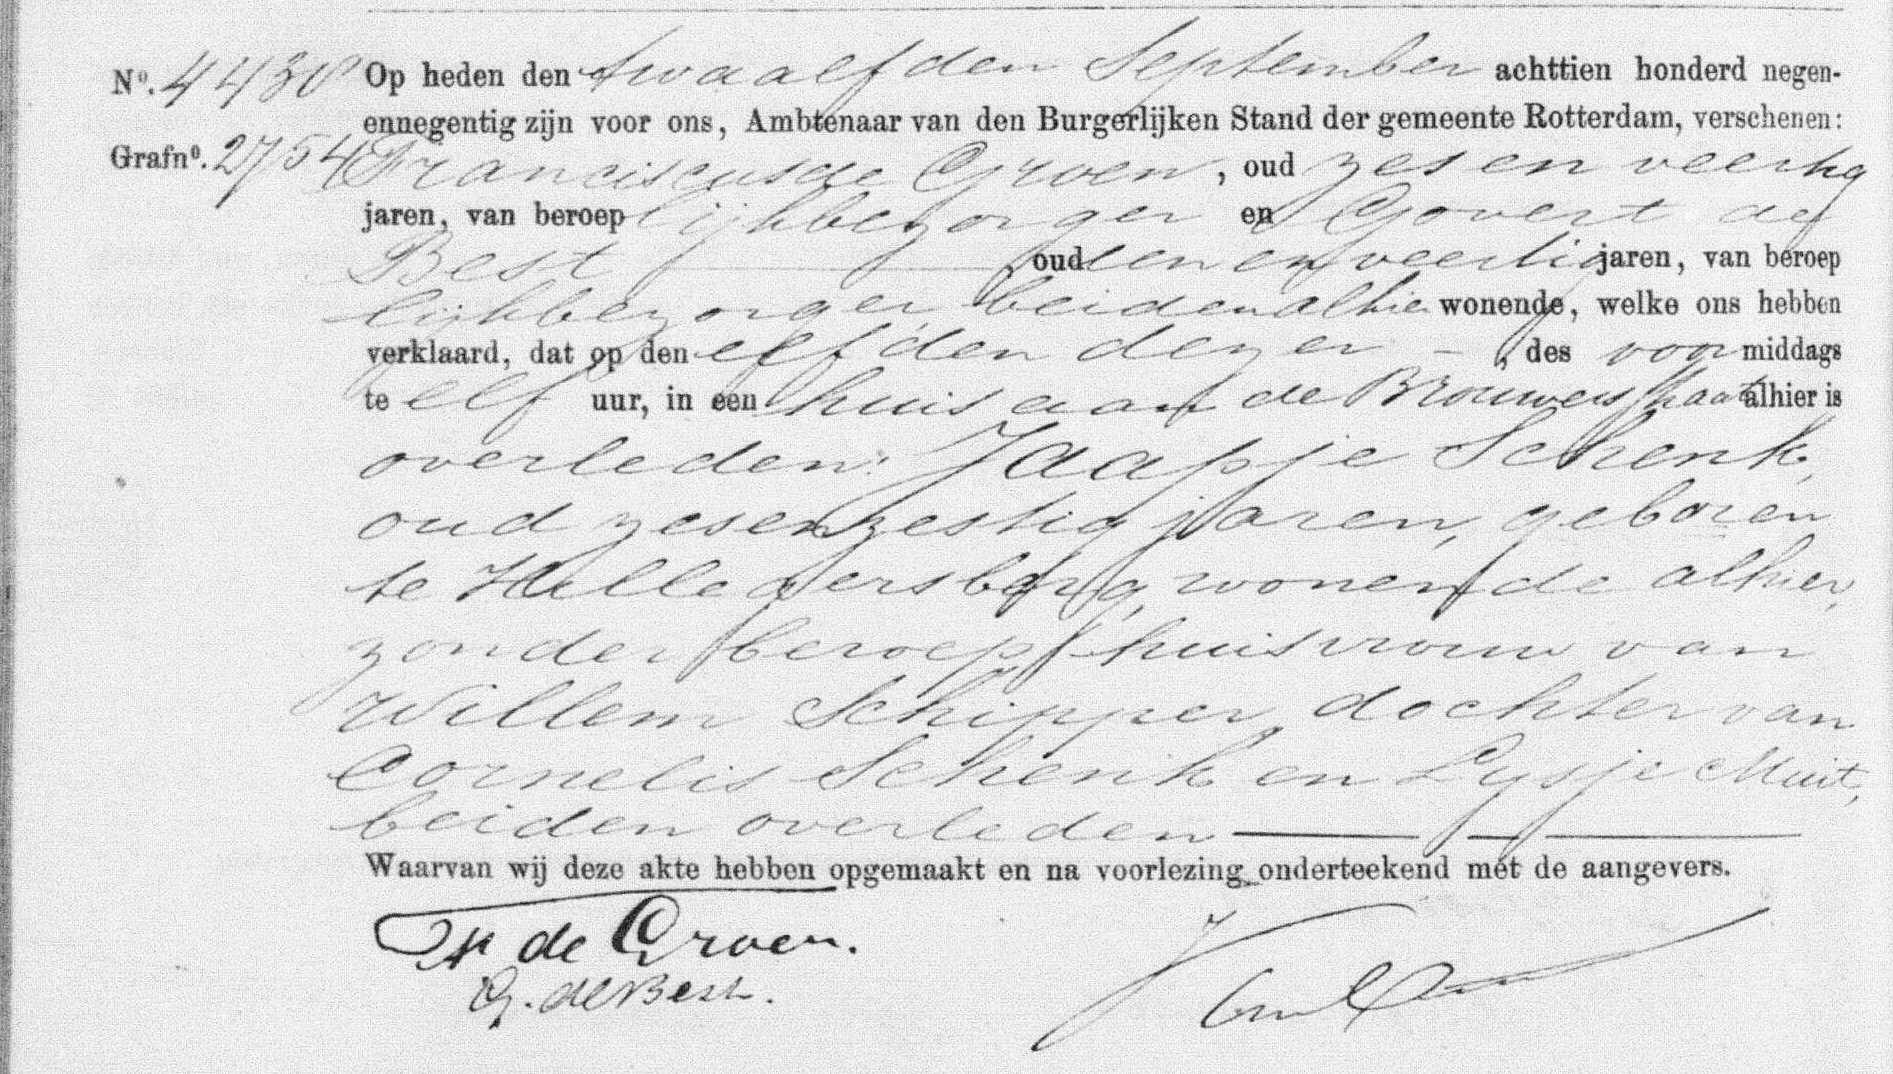 Nº. 4430 Op heden den twaalfden September achttien honderd negen-
ennegentig zijn voor ons, Ambtenaar van den Burgerlijken Stand der gemeente Rotterdam, verschenen:
Grafnº. 2754 Franciscus de Groen, oud zes en veertig
jaren, van beroep lijkbezorger en Govert de
Best, oud een en veertig jaren, van beroep
lijkbezorger beiden alhier wonende, welke ons hebben
verklaard, dat op den elfden dezer, des voormiddags
te elf uur, in een huis aan de Brouwersstraat alhier is
overleden: Jaapje Schenk,
oud zesenzestig jaren, geboren
te Hillegersberg, wonende alhier,
zonder beroep, huisvrouw van
Willem Schipper, dochter van
Cornelis Schenk en Lysje Muit,
beiden overleden
Waarvan wij deze akte hebben opgemaakt en na voorlezing onderteekend met de aangevers.
de Groen.
G. de Best.